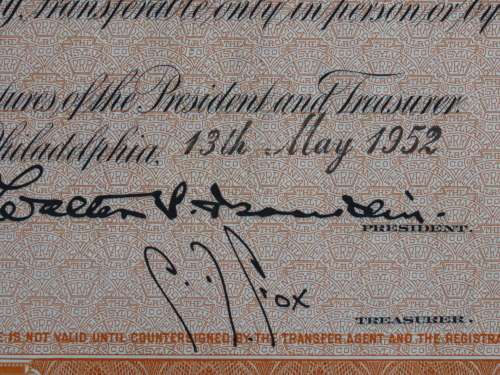 transferable only in person or by
tures of the President and Treasurer.
Philadelphia, 13th May 1952
Walter S. Franklin.
PRESIDENT.
Cox
TREASURER.
IS NOT VALID UNTIL COUNTERSIGNED BY THE TRANSFER AGENT AND THE REGISTRA